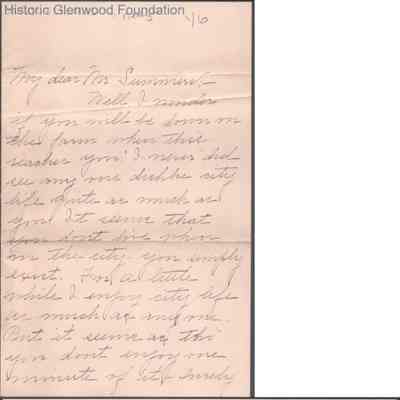 Historic Glenwood Foundation
16
My dear Mr Summers,-
Well I wonder
if you will be down on
the farm when this
reaches you! I never did
see any one dislike city
life quite as much as
you. It seems that
you dont live when
in the city you simply
exist. For a little
while I enjoy city life
as much as any one.
But it seems as tho
you dont enjoy one
minute of it & surely